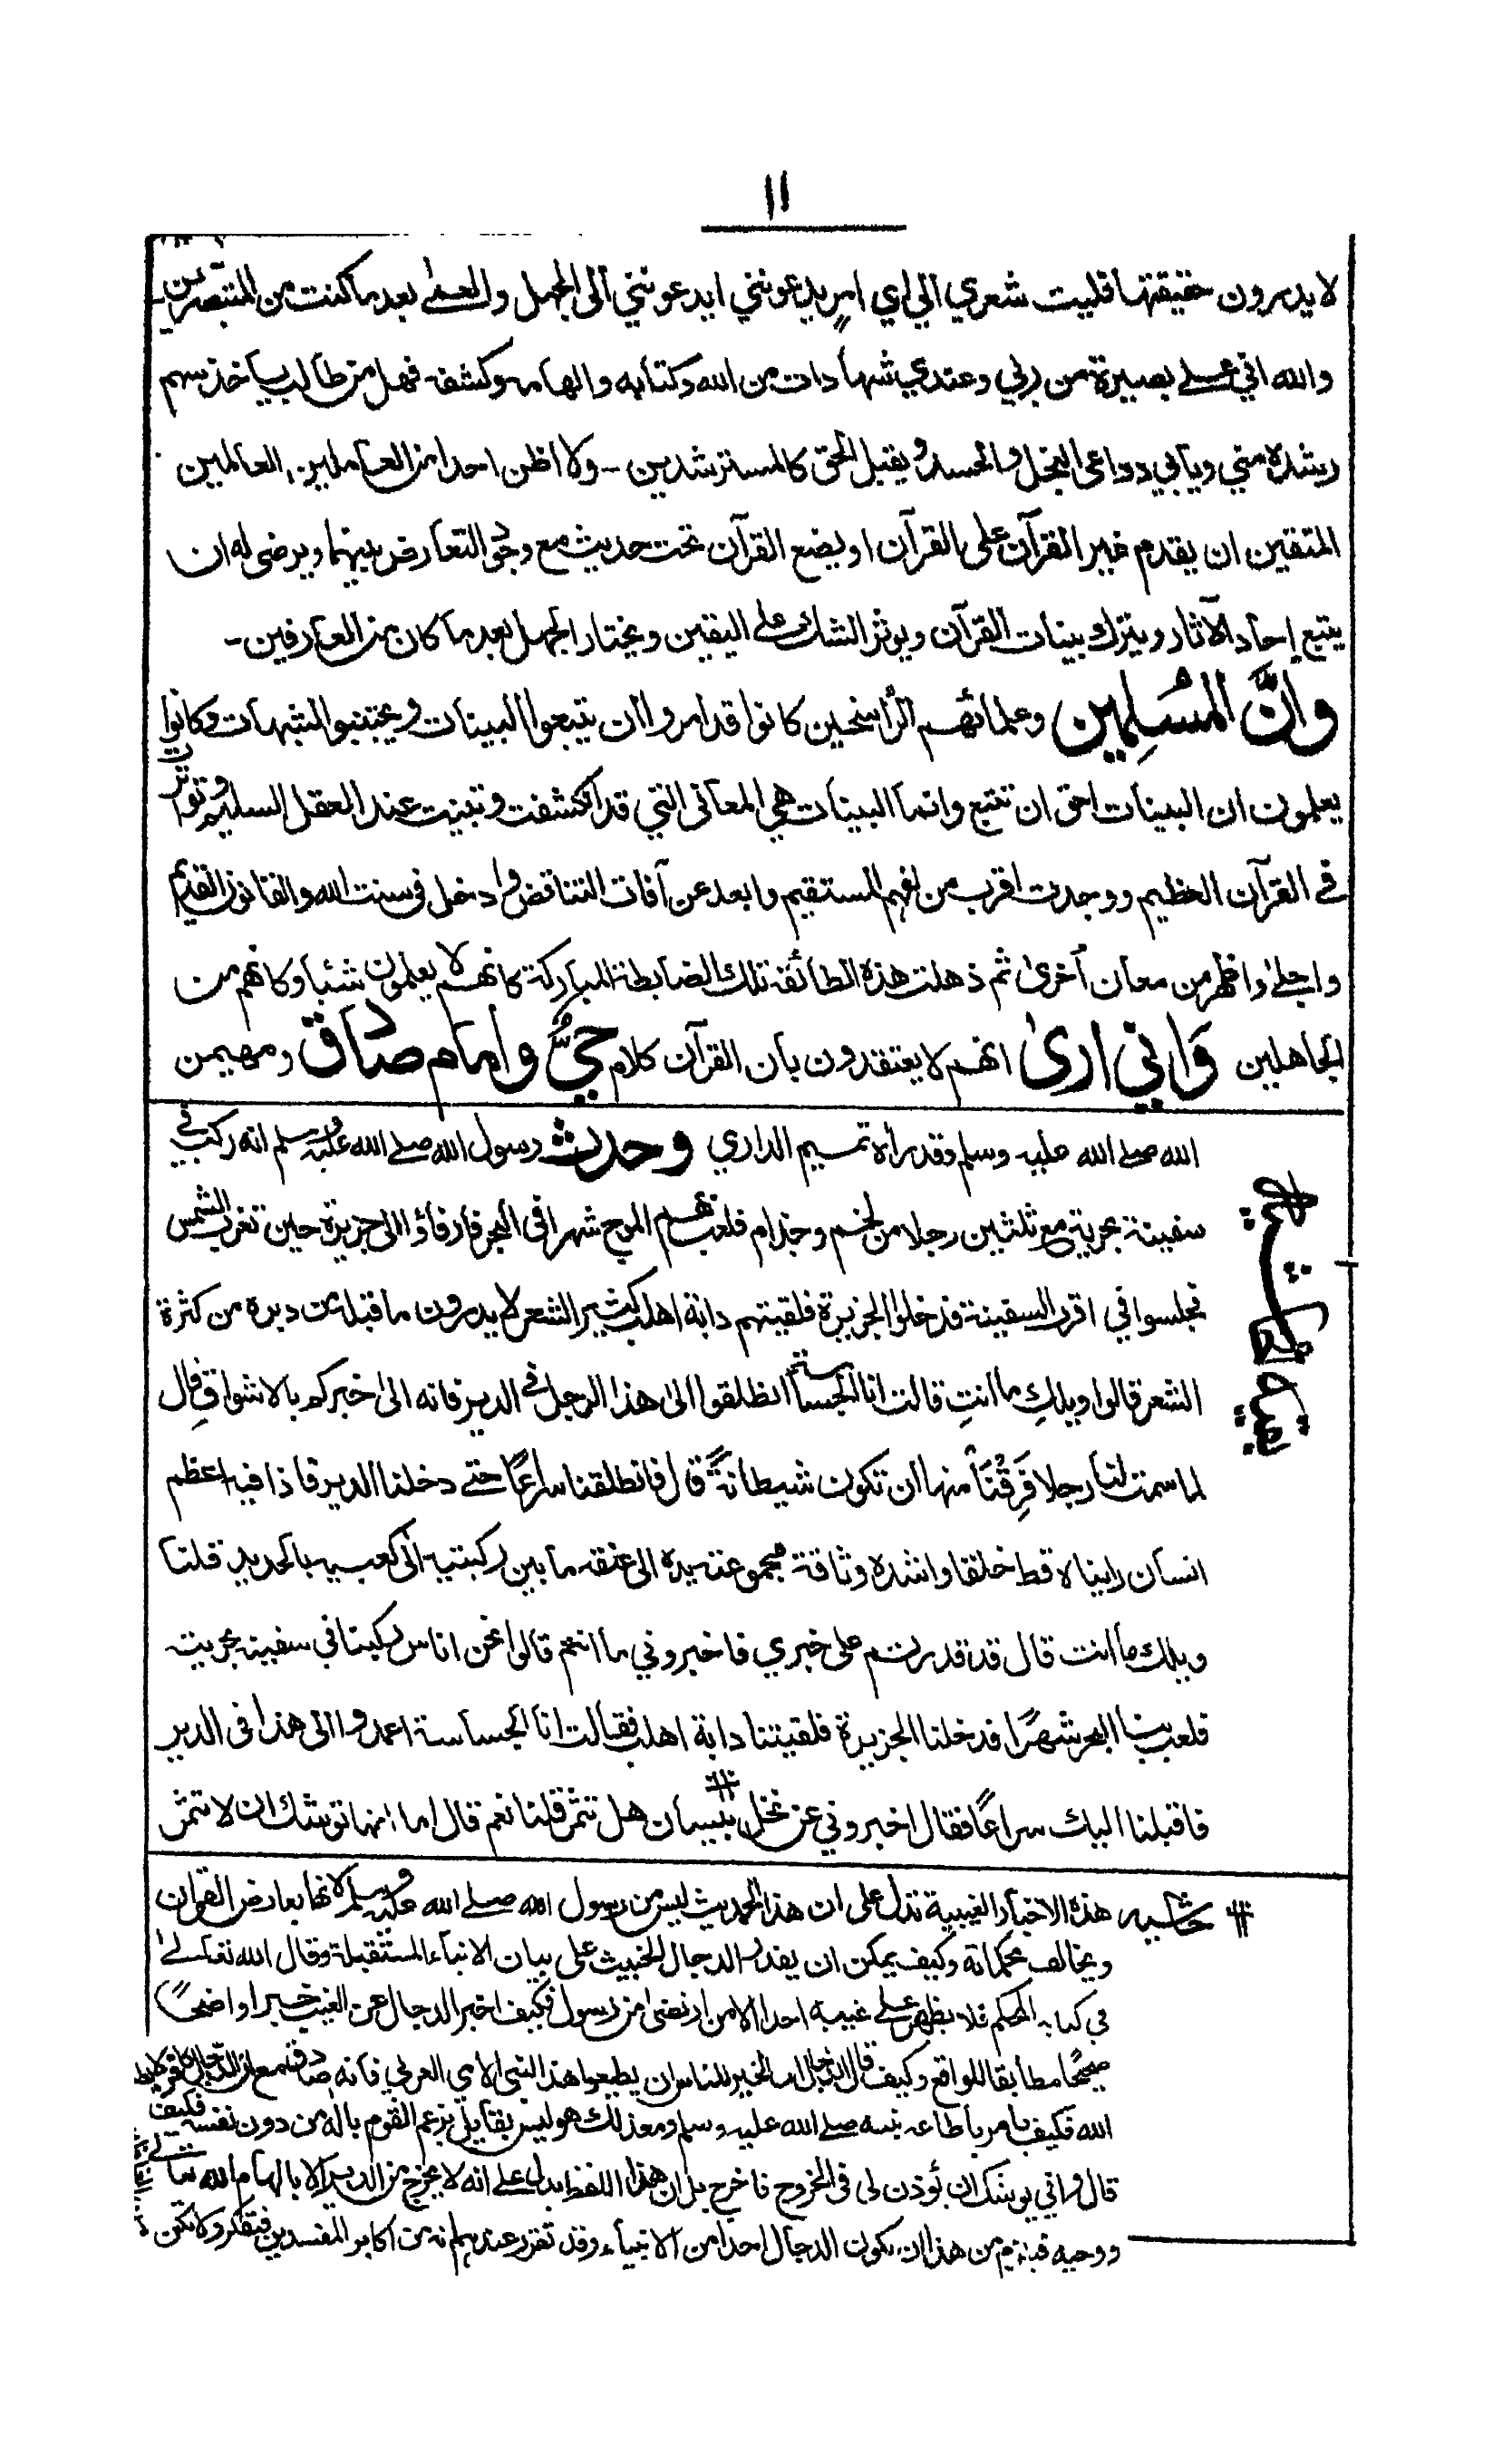 ١١
لا يدرون حقيقتها فليت شعري الى اي امر يدعونني ايدعونني الى الجهل والعمى بعد ما كنت من المتبصرين
والله اني على بصيرة من ربي وعندي شهادات من الله وكتابه والهامه وكشفه فهل من طالب ياخذ سهم
رشده مني ويابى دواعى البخل والحسد ويقبل الحق كالمسترشدين - ولا اظن احدا من العاملين العالمين
المتقين ان يقدم غير القرآن على القرآن او يضع القرآن تحت حديث مع وجود التعارض بينهما ويرضى له ان
يتبع احاد الآثار ويترك بينات القرآن ويوثر الشك على اليقين ويختار الجهل بعد ما كان من العارفين -
وانَّ المُسلِمين وعلمائهم الراسخين كانوا قد امروا ان يتبعوا البينات ويجتنبوا الشبهات وكانوا
يعلمون ان البينات احق ان تتبع وانما البينات هي المعانى التي قد انكشفت وتبينت عند العقل السليم وتواترت
فى القرآن العظيم ووجدت اقرب من لفهم المستقيم وابعد عن آفات التناقض وادخل فى سنت الله والقانون القديم
واجلى واظهر من معان أخرى ثم ذهلت هذه الطائفة تلك الضابطة المباركة كانهم لا يعلمون شئيا وكانهم من
الجاهلين وَاني ارى انهم لا يعتقدون بان القرآن كلام حيٌّ وامام صادق ومهيمن
الله صلى الله عليه وسلم وقد رأه تميم الداري وحدث رسول الله صلى الله عليه وسلم انه ركب في
سفينة بحرية مع ثلثين رجلا من لخم وجذام فلعب بهم الموج شهرا فى البحر فارفاؤا الى جزيرة حين تغرب الشمس
فجلسوا في اقرب السفينة فدخلوا الجزيرة فلقيتهم دابة اهلب كثير الشعر لا يدرون ما قبله من دبره من كثرة
الشعر قالوا ويلكِ ما انتِ قالت انا الجساسة انطلقوا الى هذا الرجل فى الدير فانه الى خبركم بالاشواق قال
لما سمت لنا رجلا فَرِقْنَا منها ان تكون شيطانةً قال فانطلقنا سراعًا حتى دخلنا الدير فاذا فيه اعظم
انسان راينا لا قط خلقا واشده وثاقة مجموعة يده الى عنقه ما بين ركبتيه الى كعبيه بالحديد قلنا
ويلك ما انت قال قد قدرتم على خبري فاخبروني ما انتم قالوا نحن اناس ركبنا في سفينة بحرية
فلعب بنا البحر شهرًا فدخلنا الجزيرة فلقيتنا دابة اهلب فقالت انا الجساسة اعمدوا الى هذا فى الدير
فاقبلنا اليك سراعًا فقال اخبروني عن نخل بيسان هل تثمر قلنا نعم قال اما انها توشك ان لا تثمر
حاشيه هذه الاخبار الغيبية تدل على ان هذا الحديث ليس من رسول الله صلى الله عليه وسلم لانها يعارض القران
ويخالف محكماته وكيف يمكن ان يقدر الدجال الخبيث على بيان الانباء المستقبلة وقال الله تعالى
في كتابه المحكم فلا يظهر على غيبه احدا الا من ارتضى من رسول فكيف اخبر الدجال عن الغيب خبرا واضحًا
صحيحًا مطابقا للواقع وكيف قال الدجال ان الخير للناس ان يطيعوا هذا النبى الامي العربي فانه صادق مع ان الدجال كافر
الله فكيف يامر باطاعة نبيه صلى الله عليه وسلم ومع ذلك هو ليس بقايل بزعم القوم باله من دون نفسه فكيف
قال واني يوشك ان يؤذن لى فى الخروج فاخرج بل ان هذا اللفظ يدل على انه لا يخرج من الدير الا بالهام الله تعالى
ووحيه فيلزم من هذا ان يكون الدجال احدا من الانبياء وقد تقرر عندهم انه من اكابر المفسدين فتفكر ولا تكن